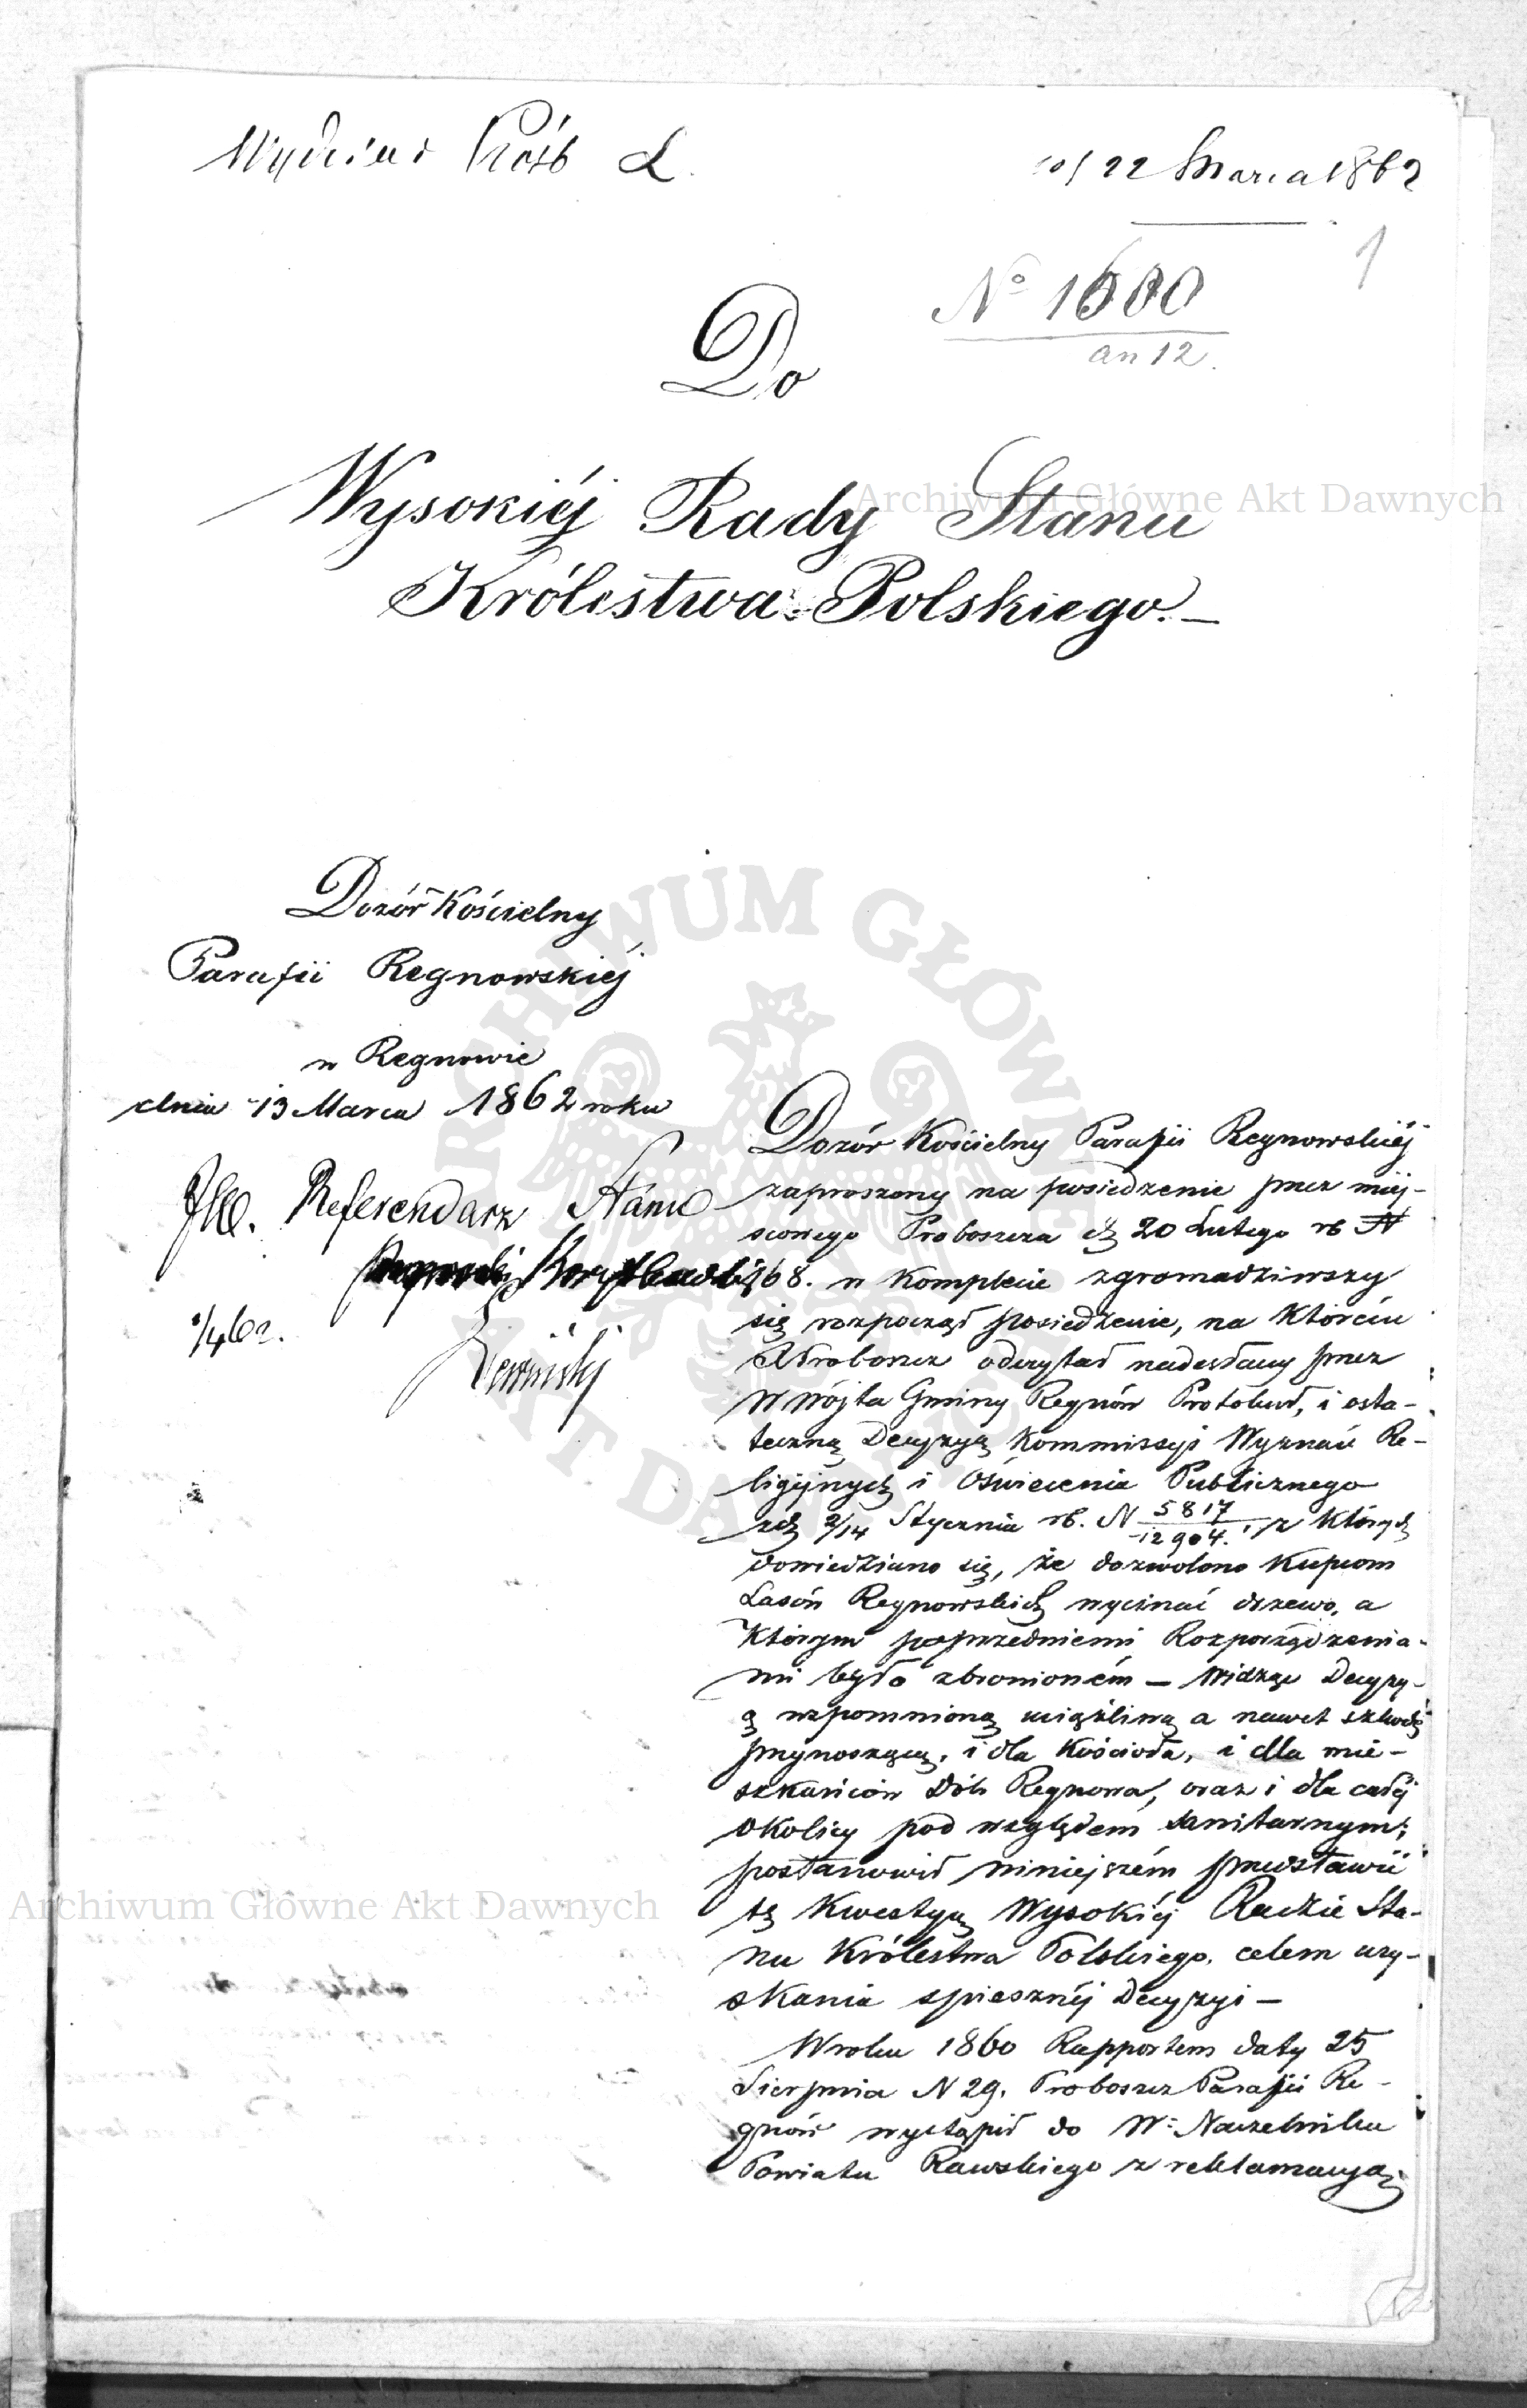 Wydział Próśb L.
10/22 Marca 1862
1
No 1600
an 12.
Do
Wysokiéj Rady Stanu
Królestwa Polskiego. —
Dozór Kościelny
Parafii Regnowskiéj
w Regnowie
dnia 13 Marca 1862 roku
JW. Referendarz Stanu
2/4 62.
Dozór Kościelny Parafii Regnowskiéj
zaproszony na posiedzenie przez miej-
scowego Proboszcza d. 20 Lutego rb N
168. w komplecie zgromadziwszy
się rozpoczął posiedzenie, na którém
Proboszcz odczytał nadesłany przez
W Wójta Gminy Regnów Protokuł, i osta-
teczną Decyzyą Kommissyi Wyznań Re-
ligijnych i Oświecenia Publicznego
z d. 2/14 Stycznia rb. N 5817/12904. z których
dowiedziano się, że dozwolono Kupcom
Lasów Regnowskich wycinać drzewo, a
którym poprzedniemi Rozporządzenia-
mi było zbronioném — Widząc Decyzy-
ą wspomnioną uciążliwą a nawet szkodę
przynoszącą, i dla Kościoła, i dla mie-
szkańców Dóbr Regnowa, oraz i dla całéj
okolicy pod względem sanitarnym;
postanowił niniejszém przedstawić
tę kwestyą Wysokiéj Radzie Sta-
nu Królestwa Polskiego, celem uzy-
skania spiesznéj Decyzyi —
W roku 1860 Rapportem daty 25
Sierpnia N 29. Proboszcz Parafii Re-
gnów wystąpił do W: Naczelnika
Powiatu Rawskiego z reklamacyą,
Archiwum Główne Akt Dawnych
Archiwum Główne Akt Dawnych
ARCHIWUM GŁÓWNE AKT DAWNYCH